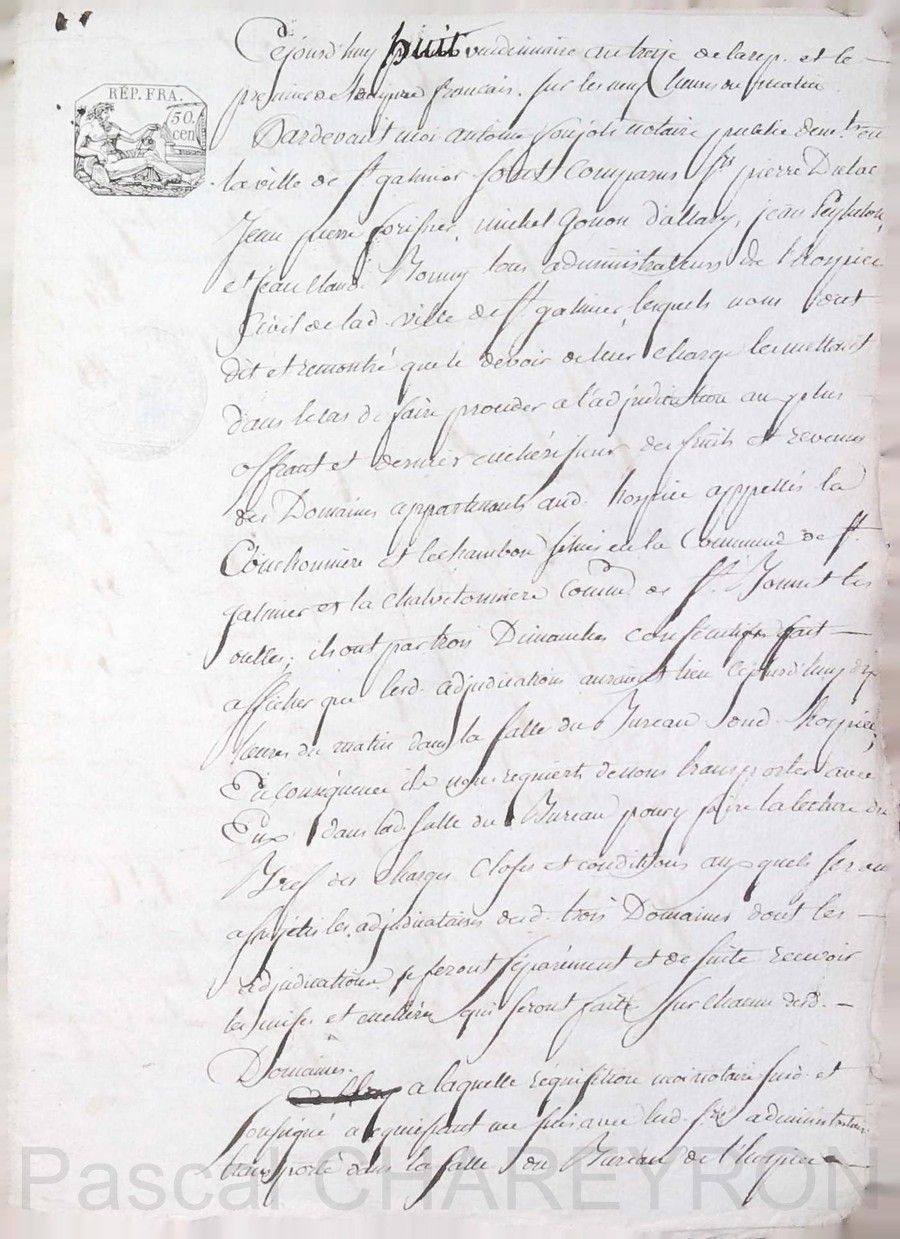 Cejourd'huy huit vendémiaire an treize de la rep. et le
premier de l'empire français. sur les neuf heures du matin.
RÉP. FRA.
50. cen
Pardevant moi antoine notaire public dem.t en
la ville de s.t galmier sont comparus s.rs pierre Dulac
Jean pierre forissier, michel gonon d'allary, jean
et jean claude Bonny tous administrateurs de l'hospice
civil de lad. ville de s.t galmier lesquels nous ont
dit et remontré que le devoir de leur charge les mettait
dans le cas de faire proceder a l'adjudication au plus
offrant et dernier enchérisseur des fruits et revenus
des Domaines appartenants aud. hospice appellés la
Conchonnière et le chambon situés en la Commune de s.t
galmier et la chalvetonnière Comm.e de s.t Bonnet les
oulles; ils ont par trois Dimanches consécutifs fait
afficher que lesd. adjudications auraient lieu cejourd'huy dix
heures du matin dans la salle du Bureau dud. hospice;
En conséquence ils nous requierts de nous transporter avec
Eux dans lad. salle du Bureau pour y faire la lecture du
Bref des charges closes et conditions auxquels seront
assujetis les adjudicataires desd. trois Domaines dont les
adjudications se feront séparément et de suite recevoir
les mises et enchères qui seront faites sur chacun desd.
Domaines.
a laquelle réquisition moi notaire susd. et
soussigné acquiesçant me suis avec lesd. s.rs administrateurs
transporté dans la salle du Bureau de l'hospice
Pascal CHAREYRON